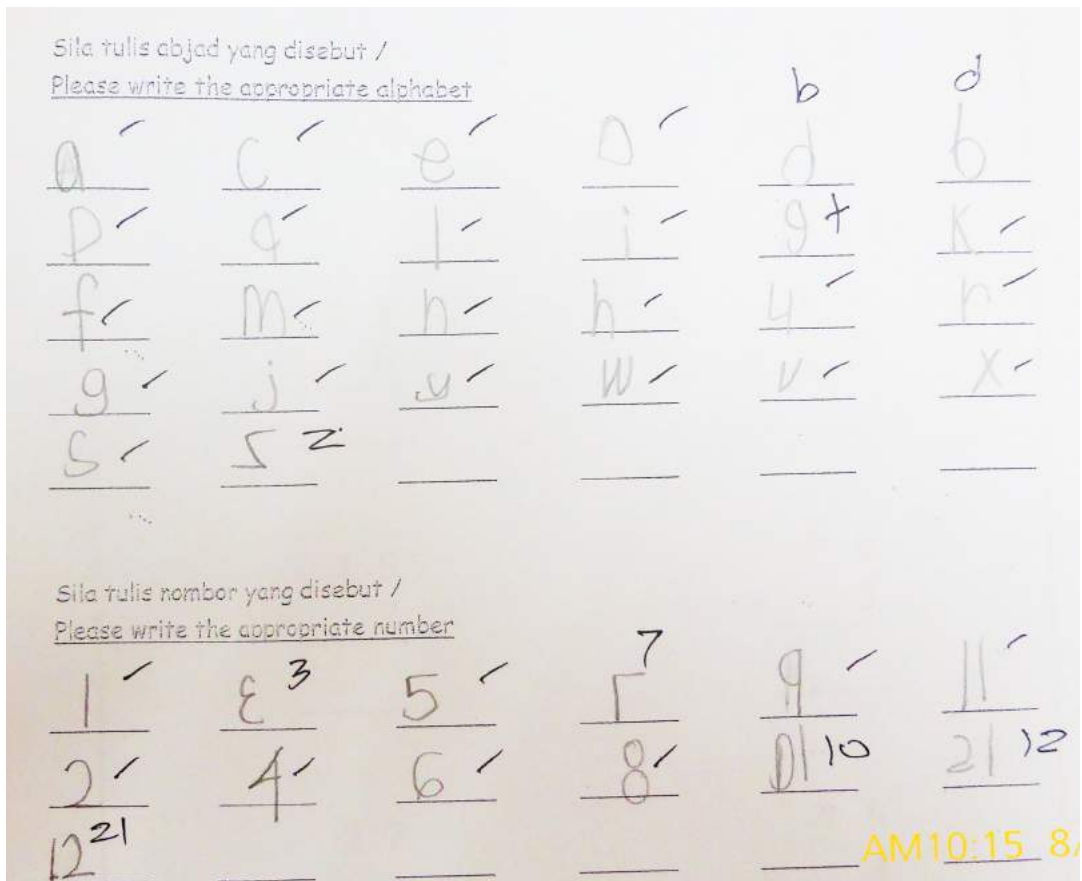 Sila tulis abjad yang disebut /
Please write the appropriate alphabet
b d
a c e o d b
p q l i g + k
f m n h u r
g j y w v x
s z
Sila tulis nombor yang disebut /
Please write the appropriate number
7
1 3 5 9 11
2 4 6 8 01 10 21 12
12 21
AM10:15 8/